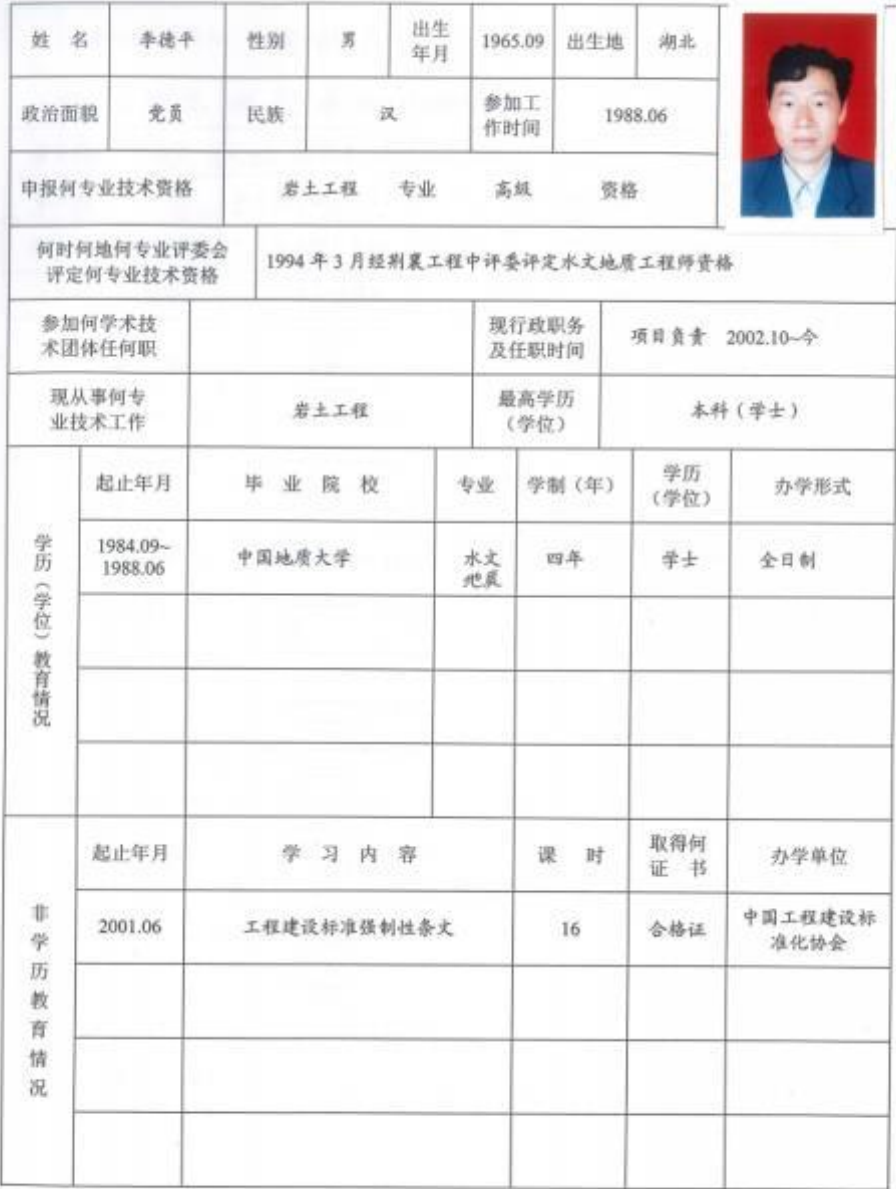 姓 名 李德平 性别 男 出生年月 1965.09 出生地 湖北
政治面貌 党员 民族 汉 参加工作时间 1988.06
申报何专业技术资格 岩土工程 专业 高级 资格
何时何地何专业评委会
评定何专业技术资格 1994年3月经荆襄工程中评委评定水文地质工程师资格
参加何学术技
术团体任何职
现行政职务
及任职时间
项目负责 2002.10~今
现从事何专
业技术工作
岩土工程
最高学历
(学位)
本科(学士)
学历(学位)教育情况
起止年月 毕 业 院 校 专业 学制(年) 学历(学位) 办学形式
1984.09~
1988.06
中国地质大学
水文
地质
四年 学士 全日制
非学历教育情况
起止年月 学 习 内 容 课 时 取得何证 书 办学单位
2001.06 工程建设标准强制性条文 16 合格证
中国工程建设标
准化协会